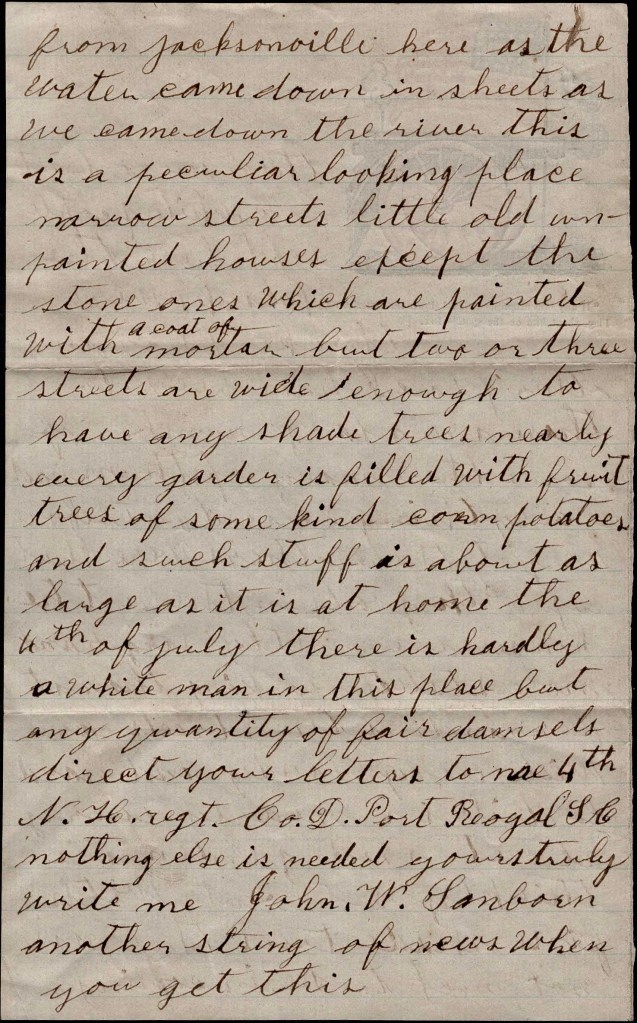 from jacksonville here as the
water came down in sheets as
we came down the river this
is a peculiar looking place
narrow streets little old un-
painted houses except the
stone ones which are painted
with a coat of mortar but two or three
streets are wide enough to
have any shade trees nearly
every garden is filled with fruit
trees of some kind corn potatoes
and such stuff is about as
large as it is at home the
4th of july there is hardly
a white man in this place but
any quantity of fair damsels
direct your letters to me 4th
N. H. regt. Co. D. Port Royal S C
nothing else is needed yours truly
write me John. W. Sanborn
another string of news when
you get this